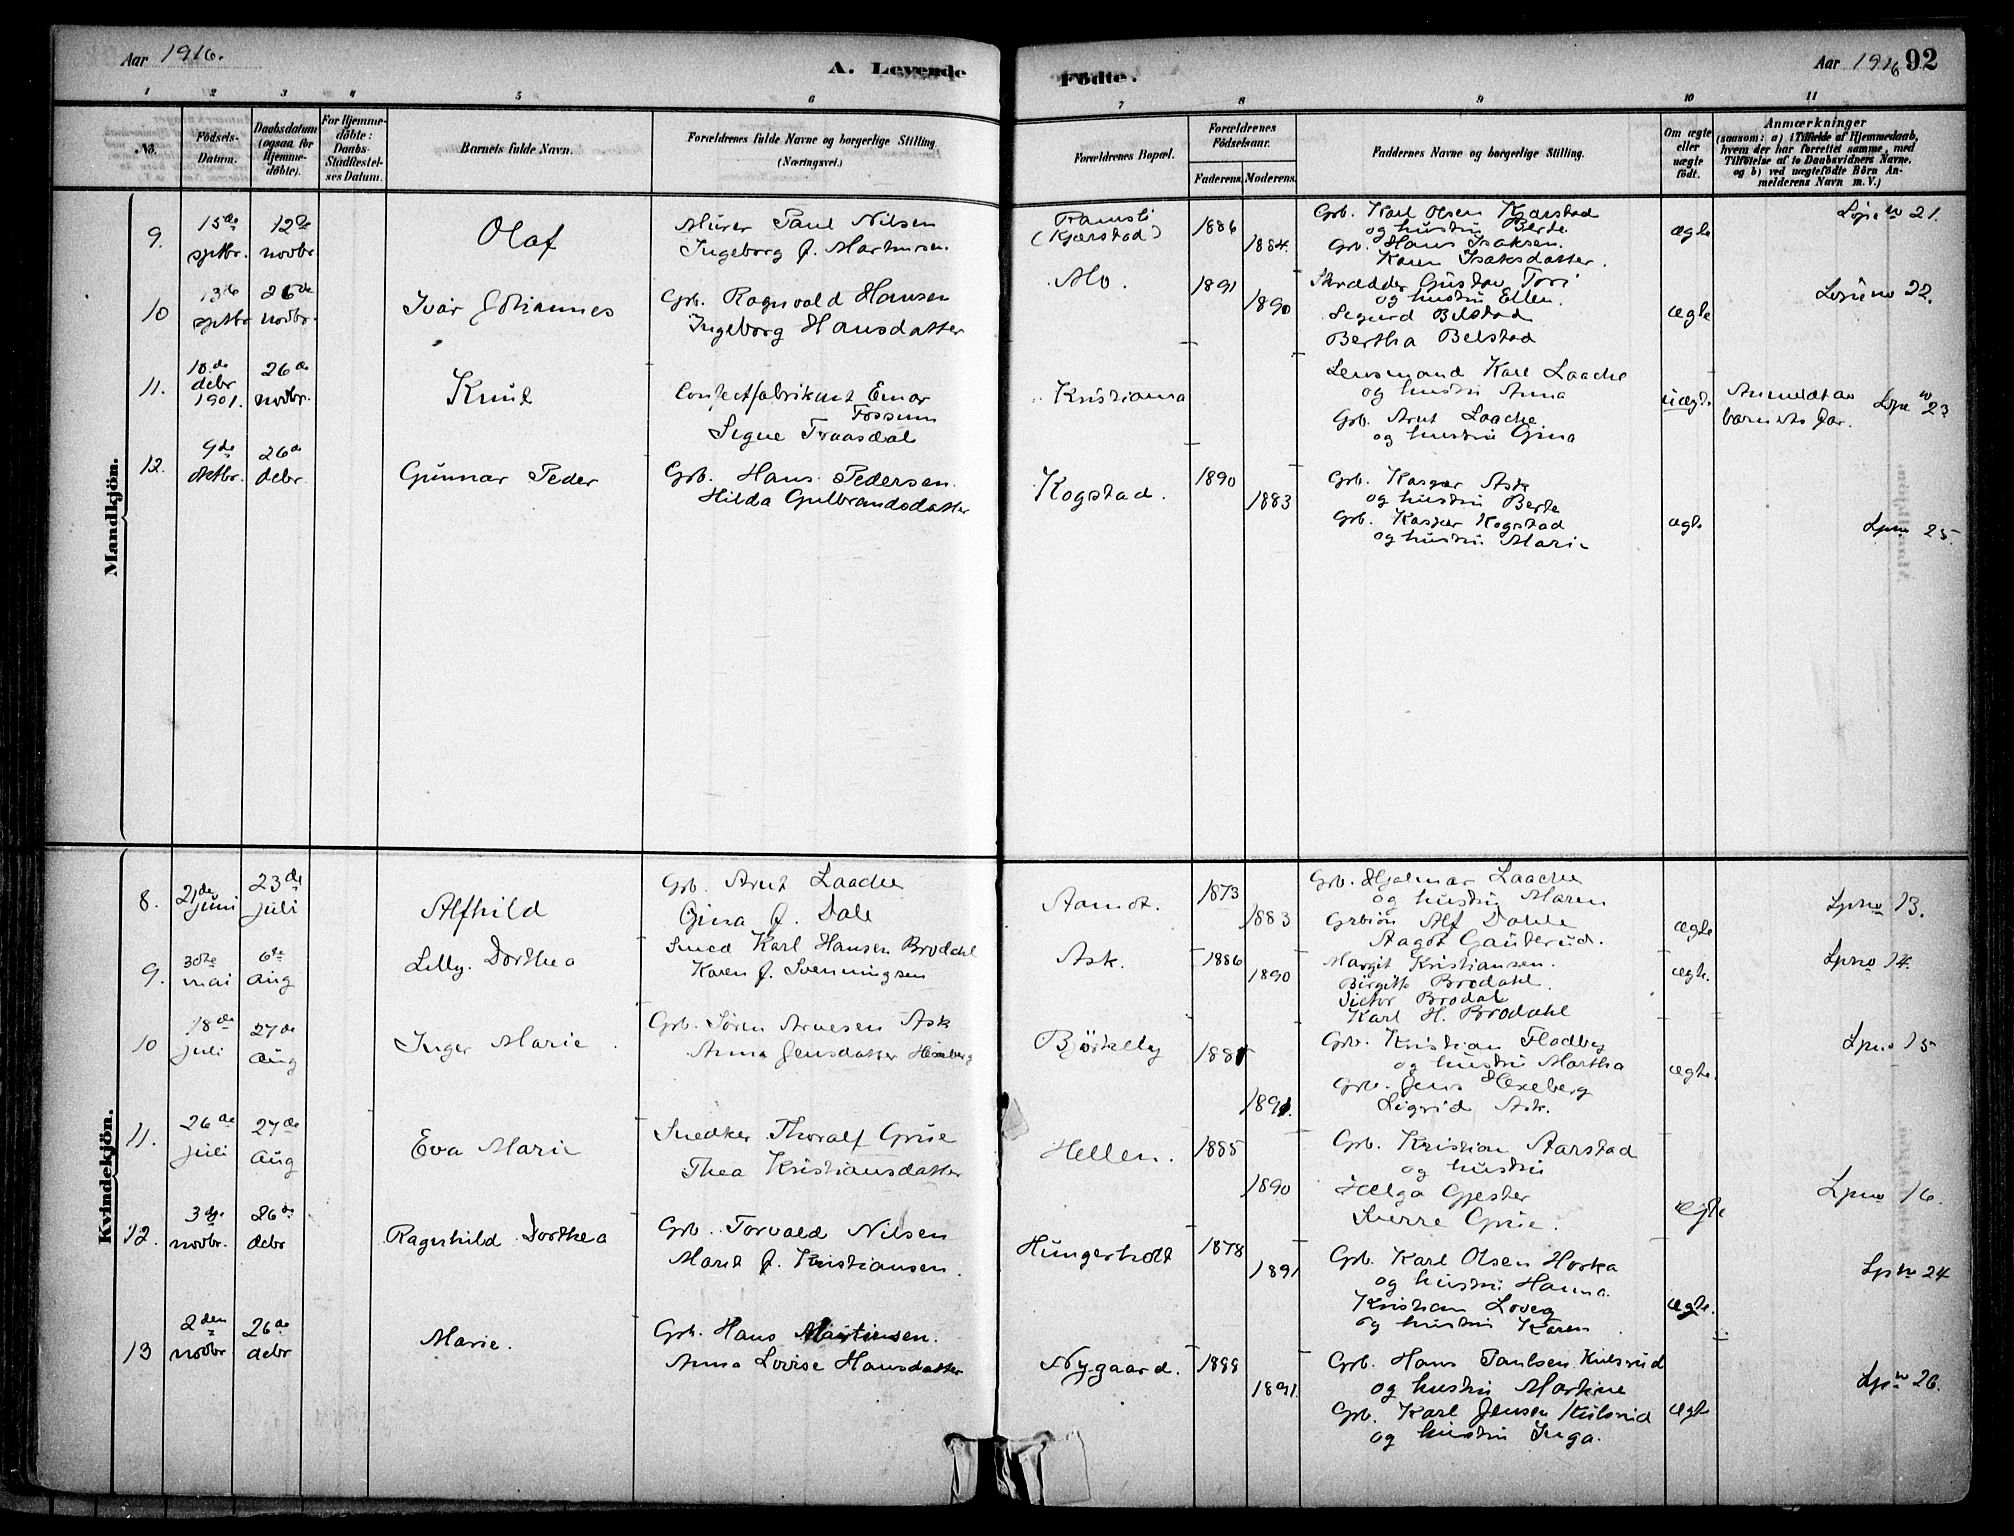 Aar 1916.
A. Levende
Födte.
Aar 1916
92
1 2 3 4 5 6 7 8 9 10 11
No.
Födsels-
Datum.
Daabsdatum
(ogsaa for
Hjemme-
döbte).
For Hjemme-
döbte:
Daabs-
Stadfæstel-
ses Datum.
Barnets fulde Navn.
Forældrenes fulde Navne og borgerlige Stilling
(Næringsvei.)
Forældrenes Bopæl.
Forældrenes
Födselsaar.
Faderens. Moderens.
Faddernes Navne og borgerlige Stilling.
Om ægte
eller
uægte
födt.
Anmærkninger
(saasom: a) i Tilfælde af Hjemmedaab,
hvem der har forrettet samme, med
Tilföielse af to Daabsvidners Navne.
og b) ved uægtefödte Börn An-
melderens Navn m. V.)
Mandkjön.
9.
15de
sptbr.
12te
novbr
Olaf
Murer Paul Nilsen
Ingeborg f. Martinsen
(Kjærstad)
1886
1884.
Grb. Karl Olsen Kjærstad
og hustru Berte
Grb. Hans Isaksen.
Karen Isaksdatter.
ægte
Löpeno 21.
10
13de
sptbr
26de
novbr.
Ivar Johannes
Grb. Ragnvald Hansen
Ingeborg Hansdatter
Mo.
1891
1890
Skrædder Gustav Tori
og hustru Ellen.
Sigurd Belstad
Bertha Belstad
ægte
Löpeno 22.
11.
10.de
debr
1901.
26de
novbr.
Knut
Confectfabrikant Einar
Fossum
Signe Traasdal
Kristiania
Lensmand Karl Laache
og hustru Anna
Grb. Arnt Laache
og hustru Gina
uægte
Anmeldt av
barnets far.
Löpeno 23
12.
9de
oktbr.
26de
debr.
Gunnar Peder
Grb. Hans Pedersen.
Hilda Gulbrandsdatter
Kogstad.
1890
1883
Grb. Kasper Ask
og hustru Berte
Grb. Kasper Kogstad
og hustru Marie
ægte
Lpno 25.
Kvindekjön.
8.
21de
juni
23de
juli
Alfhild
Grb. Arnt Laache
Gina f. Dale
Aamot.
1873
1883
Grb. Hjalmar Laache
og hustru Maren
Grbsön Alf Dahle
Aagot Gauterud.
ægte
Lpno 13.
9.
30te
mai
6te
aug
Lilly Dorthea
Smed Karl Hansen Brodahl
Karen f. Svenningsen
Ask.
1886
1890
Margit Kristiansen.
Birgitte Brodahl.
Victor Brodal
Karl H. Brodahl
ægte.
Lpno 14.
10
18de
juli
27de
aug
Inger Marie
Grb. Sören Arnesen Ask
Anna Jensdatter Hexeberg
Björkeby
1881
1891.
Grb. Kristian Flodby
og hustru Martha
Grb. Jens Hexeberg
Sigrid Ask.
ægte.
Lpno 15
11.
26de
juli
27de
aug
Eva Marie
Snedker Thoralf Grue
Thea Kristiansdatter
Hellen.
1885
1890
Grb. Kristian Aarstad
og hustru
Helga Gjester
Sverre Grue.
ægte
Lpno 16.
12.
3dje
novbr.
26de
debr
Ragnhild Dorthea
Grb. Torvald Nilsen
Marit f. Kristiansen.
Hungerholt
1878
1891
Grb. Karl Olsen Horka
og hustru Hanna.
Kristian Loveg
og hustru Karen.
ægte.
Lpno 24
13
2den
novbr
26de
debr
Marie.
Grb. Hans Martinsen.
Anna Lovise Hansdatter
Nygaard.
1888
1891
Grb. Hans Paulsen Kulsrud
og hustru Martine
Grb. Karl Jensen Kulsrud
og hustru Inga.
ægte
Lpno 26.